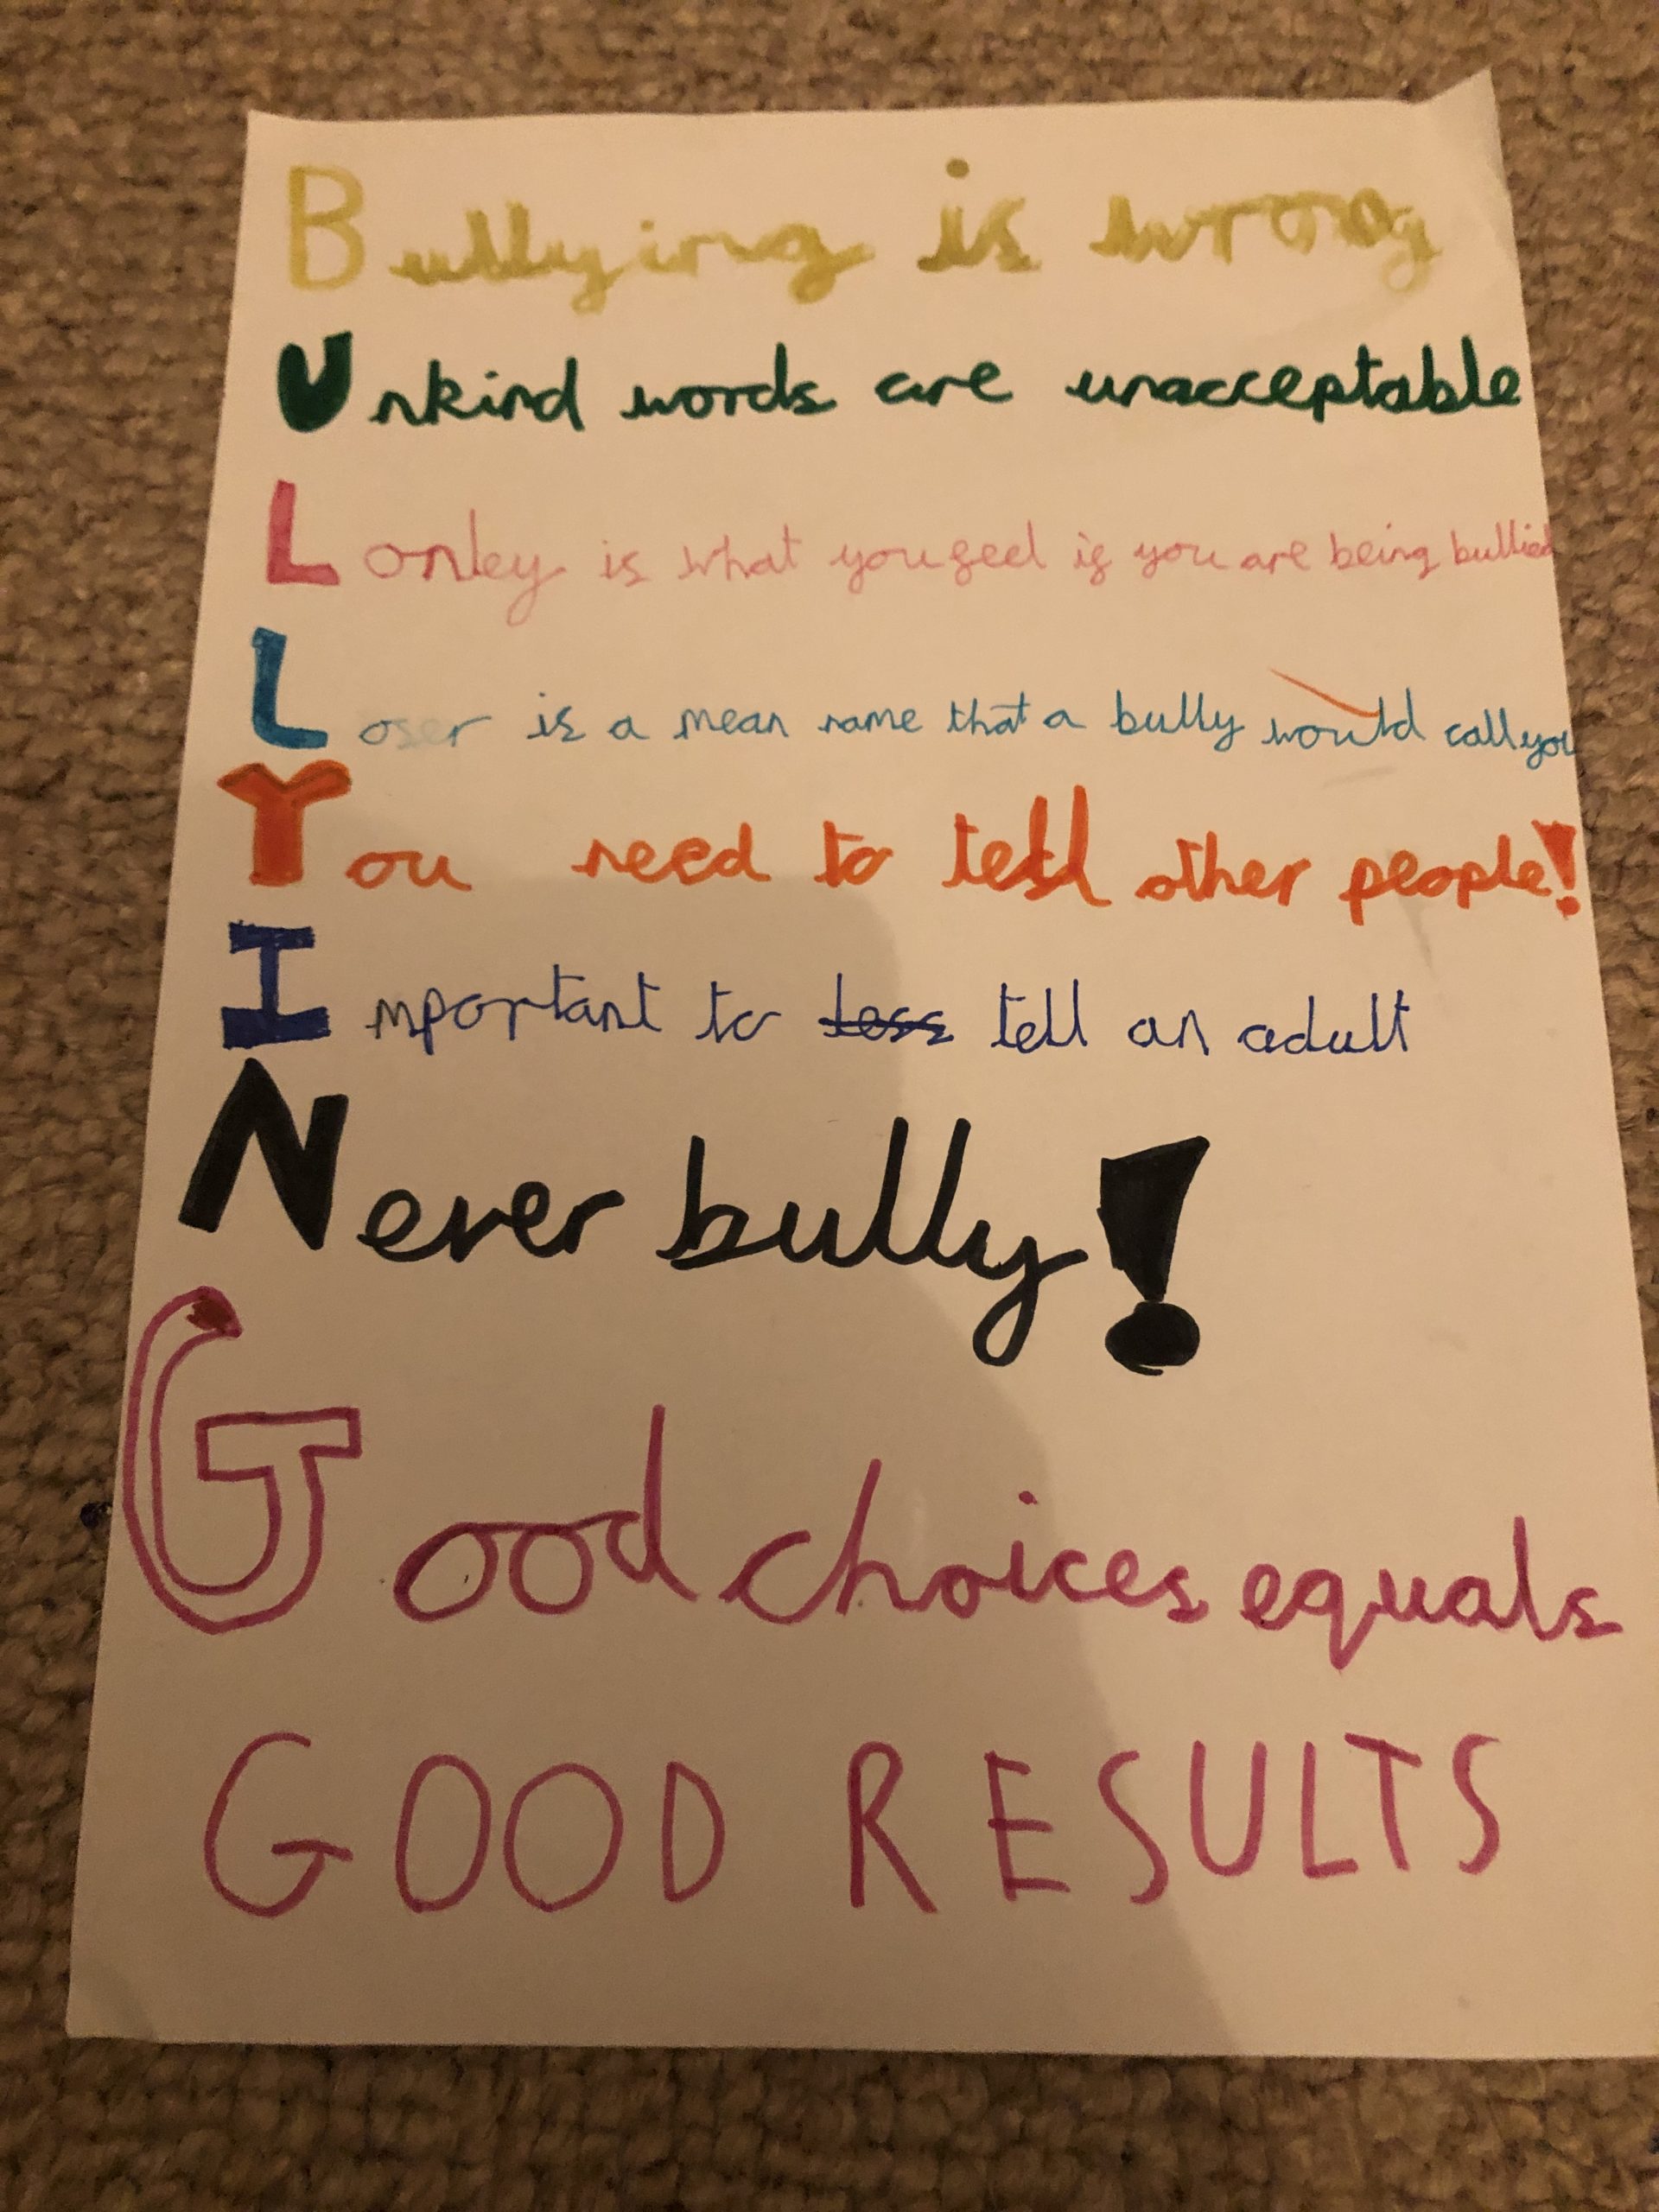 Bullying is wrong
Unkind words are unacceptable
Lonley is what you feel if you are being bullied
Loser is a mean name that a bully would call you
You need to tell other people!
Important to tell an adult
Never bully!
Good choices equals
GOOD RESULTS